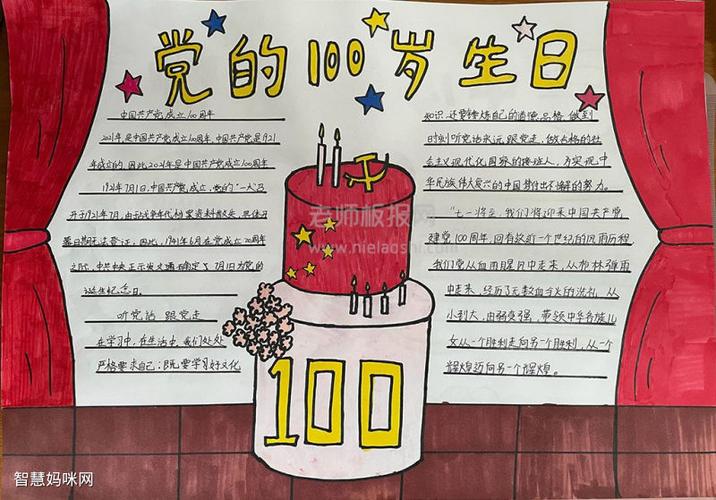 党的100岁生日
中国共产党成立100周年
2021年,是中国共产党成立100周年,中国共产党是1921
年成立的,因此,2021年是中国共产党成立100周年
1921年7月1日,中国共产党成立,党的“一大”召
开于1921年7月,由于战争年代档案资料散失,具体开
幕日期无法查证,因此,1941年6月在党成立20周年
之际,中共中央正式发文确定了7月1日为党的
诞生纪念日。
听党话 跟党走
在学习中,在生活中,我们处处
严格要求自己:既要学习好文化
知识,还要锤炼自己的道德品格,做到
时刻听党话永远跟党走,做合格的社
会主义现代化国家的接班人,为实现中
华民族伟大复兴的中国梦付出不懈的努力。
“七一将至,我们将迎来中国共产党
建党100周年,回首这近一个世纪的风雨历程
我们党从血雨腥风中走来,从枪林弹雨
中走来,经历了无数血与火的洗礼,从
小到大,由弱变强,带领中华各族儿
女从一个胜利走向另一个胜利,从一个
辉煌迈向另一个辉煌。
老师板报网
www.nielaoshi.com
100
智慧妈咪网